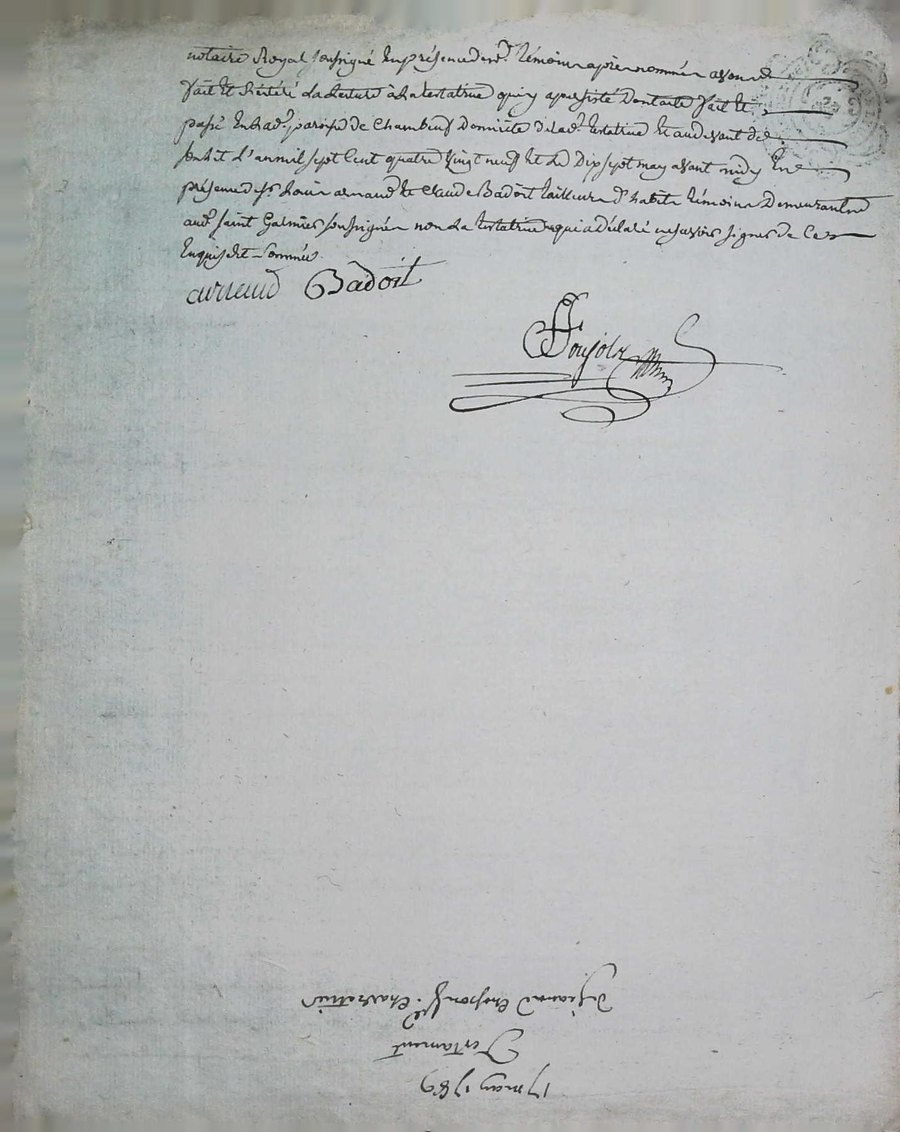 notaire Royal soussigné en présence des d. témoins après nommés avons
fait et Réitéré La Lecture à La testatrice qui y a persisté Dont acte fait et
passé En lad. paroisse de Chambeuf Domicile de lad. testatrice Et au devant de
L'an mil sept Cent quatre Vingt neuf Et Le Dix sept may avant midy En
présence de sr. Louis arnaud Et Claude Badoit tailleur d'habits témoins Demeurant
aud. saint Galmier soussignés non La testatrice qui a déclaré ne savoir signer de Ce
Enquise et Sommée
arnaud Badoit
17 may 1789
Testament